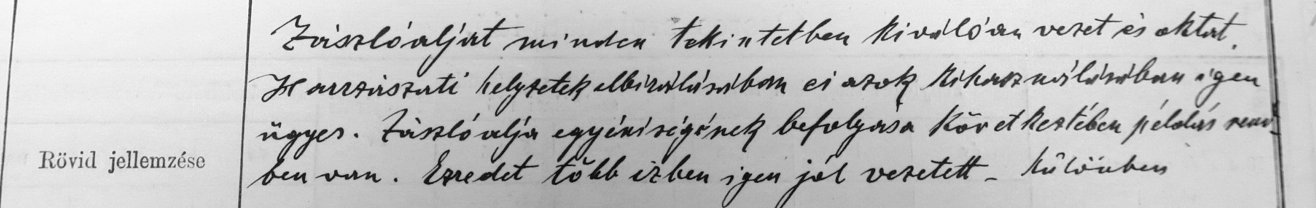 Zászlóalját minden tekintetben kiválóan vezet és oktat.
Harcászati helyzetek elbirálásában és azok kihasználásában igen
ügyes. Zászlóalja egyéniségének befolyása következtében példás rend-
Rövid jellemzése
ben van. Ezredet több izben igen jól vezetett - különben